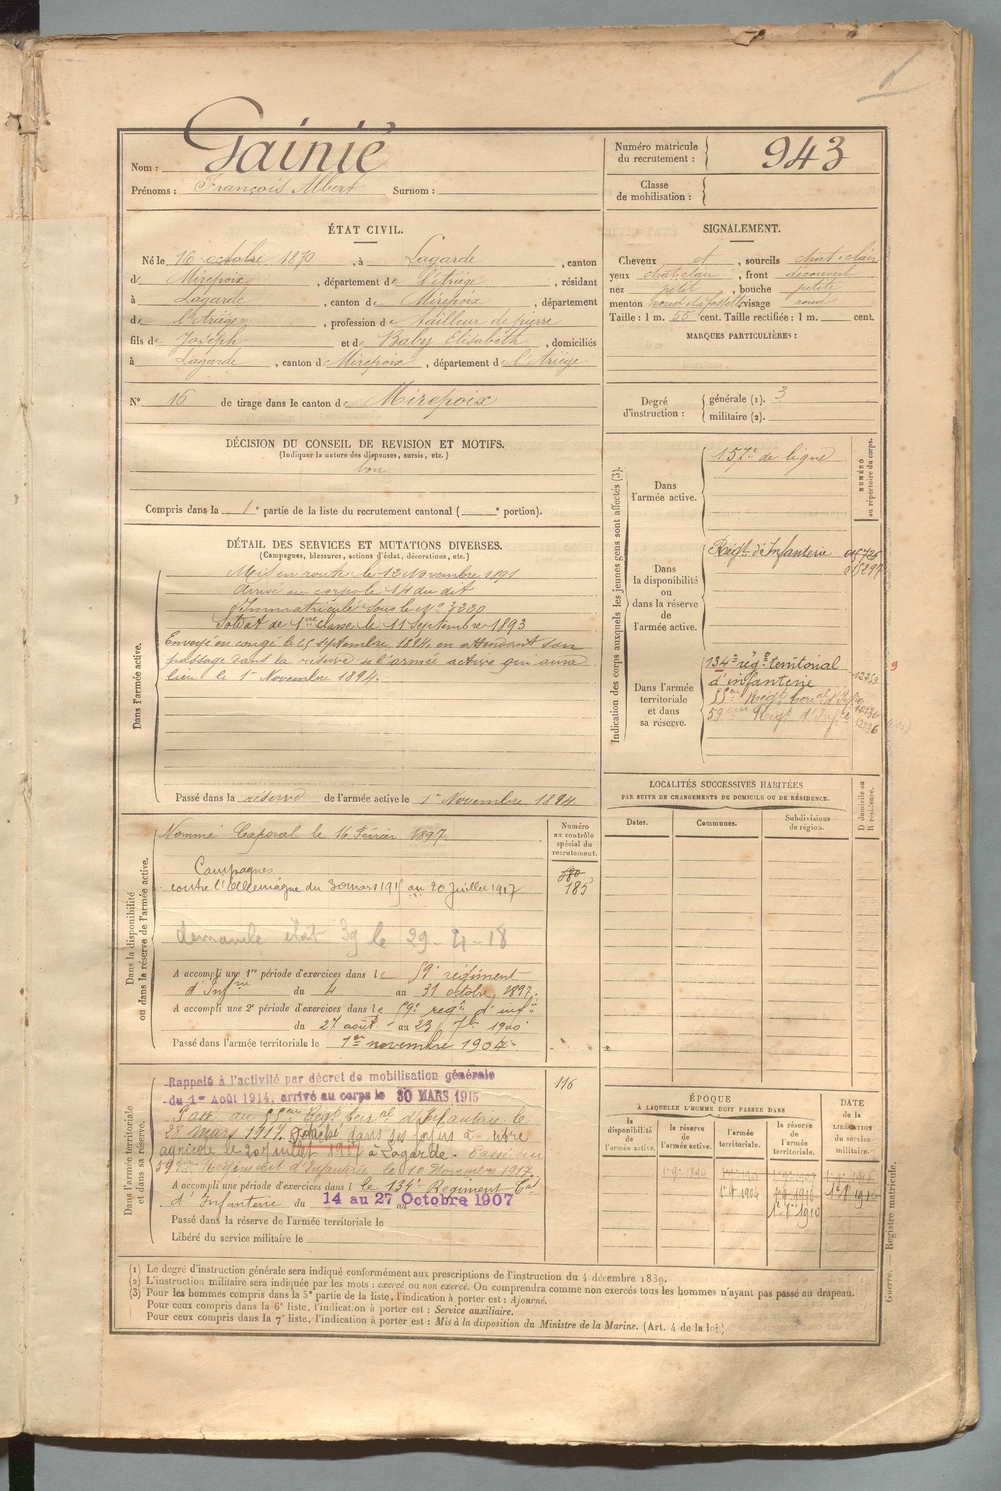 Nom : Gainié
Prénoms : François Albert Surnom :
Numéro matricule du recrutement : 943
Classe de mobilisation :
ÉTAT CIVIL.
Né le 16 octobre 1870, à Lagarde, canton
de Mirepoix, département de l'Ariège, résidant
à Lagarde, canton de Mirepoix, département
de l'Ariège, profession de tailleur de pierre
fils de Joseph et de Baby Élisabeth, domiciliés
à Lagarde, canton de Mirepoix, département de l'Ariège
N° 16 de tirage dans le canton de Mirepoix
SIGNALEMENT.
Cheveux et, sourcils chat. clair
yeux chat. clair, front découvert
nez petit, bouche petite
menton rond à fossette, visage rond
Taille : 1 m. 55 cent. Taille rectifiée : 1 m. cent.
MARQUES PARTICULIÈRES :
Degré d'instruction : générale (1). 3
militaire (2).
DÉCISION DU CONSEIL DE REVISION ET MOTIFS.
(Indiquer la nature des dispenses, sursis, etc.)
bon
Compris dans la 1e partie de la liste du recrutement cantonal ( e portion).
DÉTAIL DES SERVICES ET MUTATIONS DIVERSES.
(Campagnes, blessures, actions d'éclat, décorations, etc.)
Dans l'armée active.
Mis en route le 12 Novembre 1891
Arrivé au corps le 14 du dit
Immatriculé sous le N° 3220
Soldat de 1ère classe le 11 septembre 1893
Envoyé en congé le 25 septembre 1894 en attendant son
passage dans la réserve de l'armée active qui aura
lieu le 1er Novembre 1894.
Passé dans la réserve de l'armée active le 1er Novembre 1894
Indication des corps auxquels les jeunes gens sont affectés (3).
NUMÉRO au répertoire du corps.
Dans l'armée active.
157e de ligne
Dans la disponibilité ou dans la réserve de l'armée active.
Régt d'Infanterie
Dans l'armée territoriale et dans sa réserve.
134e rég t territorial
d'infanterie
55ème Régt terral d'Infie
59ème Régt d'Infie
LOCALITÉS SUCCESSIVES HABITÉES
PAR SUITE DE CHANGEMENTS DE DOMICILE OU DE RÉSIDENCE.
Dates. Communes. Subdivisions de région.
D domicile ou R résidence.
Dans la disponibilité ou dans la réserve de l'armée active.
Numéro au contrôle spécial du recrutement.
580
185
Nommé Caporal le 16 Février 1897
Campagnes
contre l'Allemagne du 30 mars 1915 au 20 Juillet 1917
demande état 39 le 29-4-18
A accompli une 1re période d'exercices dans le 59e régiment
d'Infrie du 4 au 31 octobre 1897.
A accompli une 2e période d'exercices dans le 59e regt d'infie
du 27 août au 23 7bre 1900
Passé dans l'armée territoriale le 1er novembre 1904
Dans l'armée territoriale et dans sa réserve.
116
Rappelé à l'activité par décret de mobilisation générale
du 1er Août 1914, arrivé au corps le 30 MARS 1915
Passé au 55ème Régt terral d'Infanterie le
28 mars 1917. Détaché dans ses foyers à titre
agricole le 20 juillet 1917 à Lagarde. Passé au
59ème Régiment d'Infanterie le 10 Novembre 1917
A accompli une période d'exercices dans le 134e Régiment Tal
d'Infanterie du 14 au 27 Octobre 1907
Passé dans la réserve de l'armée territoriale le
Libéré du service militaire le
ÉPOQUE
À LAQUELLE L'HOMME DOIT PASSER DANS
la disponibilité de l'armée active.
la réserve de l'armée active.
l'armée territoriale.
la réserve de l'armée territoriale.
DATE de la LIBÉRATION du service militaire.
(1) Le degré d'instruction générale sera indiqué conformément aux prescriptions de l'instruction du 4 décembre 1889.
(2) L'instruction militaire sera indiquée par les mots : exercé ou non exercé. On comprendra comme non exercés tous les hommes n'ayant pas passé au drapeau.
(3) Pour les hommes compris dans la 5e partie de la liste, l'indication à porter est : Ajourné.
Pour ceux compris dans la 6e liste, l'indication à porter est : Service auxiliaire.
Pour ceux compris dans la 7e liste, l'indication à porter est : Mis à la disposition du Ministre de la Marine. (Art. 4 de la loi)
Guerre. — Registre matricule.